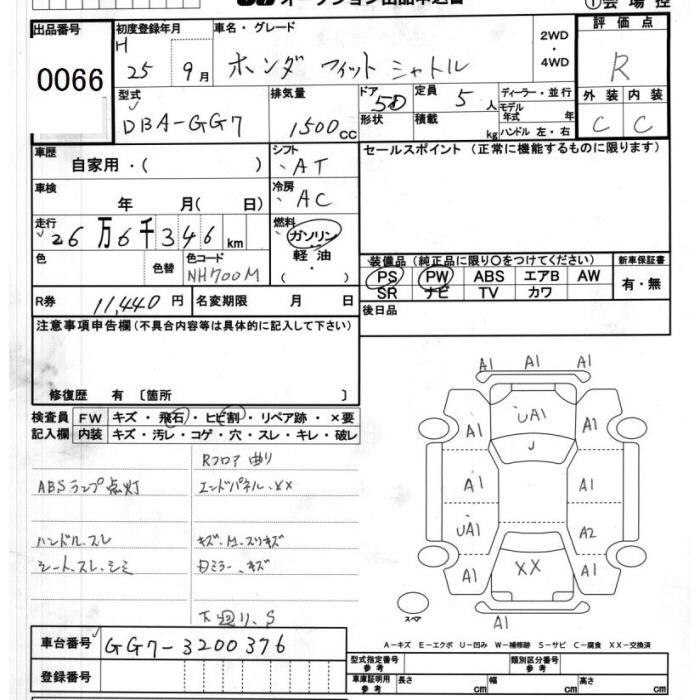 オークション出品申込書
①会場控
出品番号
0066
初度登録年月
H 25 9月
車名・グレード
ホンダ フィットシャトル
2WD・4WD
評価点
R
型式
DBA-GG7
排気量
1500cc
ドア
5D
形状
定員
5人
積載
kg
ディーラー・並行
モデル年式 年
ハンドル 左・右
外装 内装
C C
車歴
自家用・( )
シフト
AT
セールスポイント(正常に機能するものに限ります)
車検
年 月( 日)
冷房
AC
走行
26万6千346km
燃料
ガソリン・軽油・( )
色
色替
色コード
NH700M
装備品(純正品に限り○をつけてください)
新車保証書
PS PW ABS エアB AW
SR ナビ TV カワ
有・無
R券
11,440円
名変期限 月 日
後日品
注意事項申告欄(不具合内容等は具体的に記入して下さい)
修復歴 有〔箇所 〕
検査員記入欄
FW キズ・飛石・ヒビ割・リペア跡・×要
内装 キズ・汚レ・コゲ・穴・スレ・キレ・破レ
Rフロア曲り
ABSランプ点灯
エンドパネル.XX
ハンドル.スレ
シート.スレ.シミ
下廻り.S
A1 A1 A1
A1 UA1 A1
J
A1 A1
UA1 A2
A1 XX A1
A1
スペア
A-キズ E-エクボ U-凹み W-補修跡 S-サビ C-腐食 XX-交換済
車台番号
GG7-3200376
登録番号
型式指定番号 参考
類別区分番号 参考
車庫証明用 参考
長さ cm
幅 cm
高さ cm